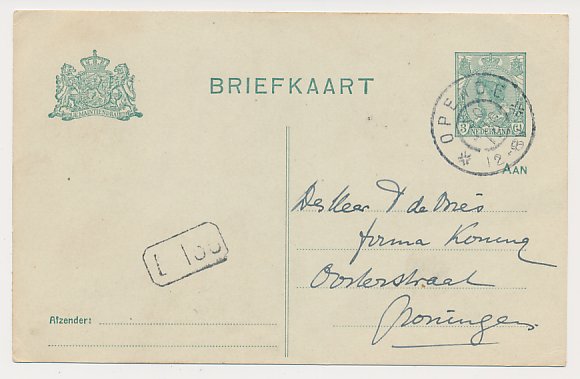 BRIEFKAART
JE MAINTIENDRAI
3 Ct
NEDERLAND
OPENDE
12-8
AAN
Des Heer T de Vries
firma Koning
Oosterstraat
Groningen.
Afzender: